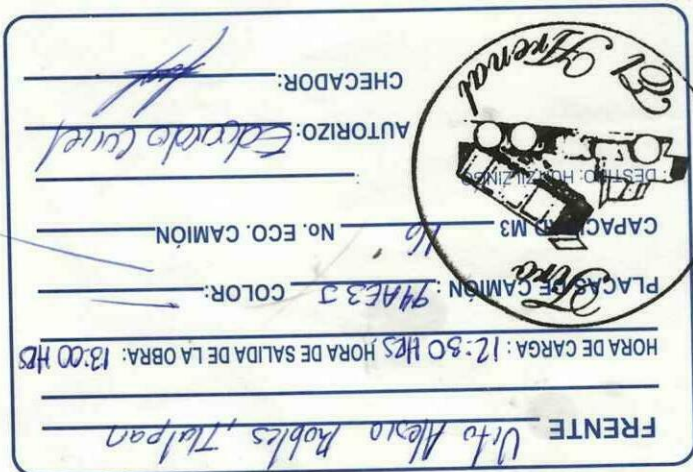 FRENTE Vito Alesio Robles, Tlalpan
HORA DE CARGA: 12:30 HRS HORA DE SALIDA DE LA OBRA: 13:00 HRS
PLACAS DE CAMIÓN: 94AE3J COLOR:
CAPACIDAD M3 16 No. ECO. CAMIÓN
DESTINO: HUITZILZINGO
AUTORIZO: Eduardo Curiel
CHECADOR:
Tiro
El Arenal